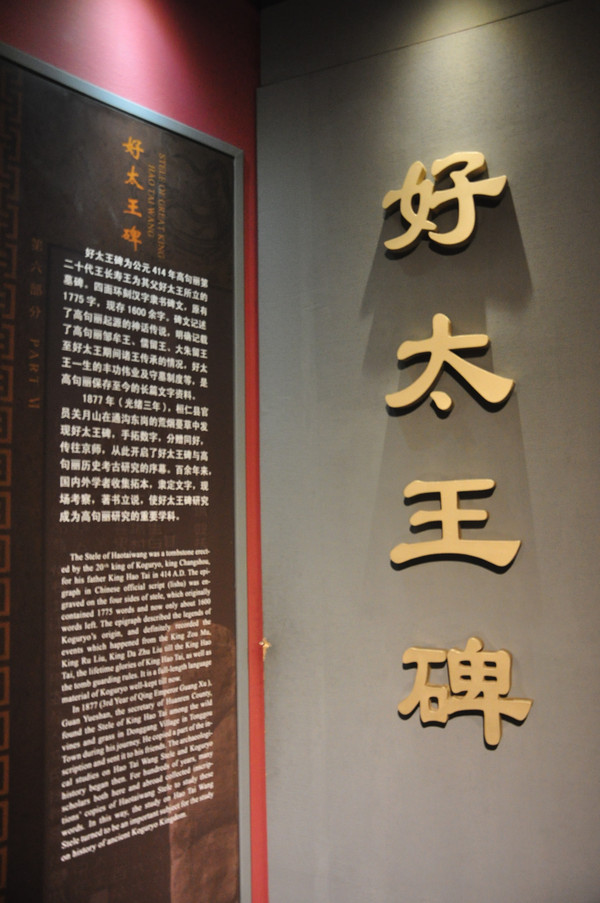 好太王碑
STELE OF GREAT KING
HAO TAI WANG
第六部分 PART VI
好太王碑为公元414年高句丽第
二十代王长寿王为其父好太王所立的
墓碑。四面环刻汉字隶书碑文，原有
1775字，现存1600余字。碑文记述
了高句丽起源的神话传说，明确记载
了高句丽邹牟王、儒留王、大朱留王
至好太王期间诸王传承的情况，好太
王一生的丰功伟业及守墓制度等，是
高句丽保存至今的长篇文字资料。
1877年（光绪三年），桓仁县官
员关月山在通沟东岗的荒烟蔓草中发
现好太王碑，手拓数字，分赠同好，
传往京师，从此开启了好太王碑与高
句丽历史考古研究的序幕。百余年来，
国内外学者收集拓本，隶定文字，现
场考察，著书立说，使好太王碑研究
成为高句丽研究的重要学科。
The Stele of Haotaiwang was a tombstone erect-
ed by the 20th king of Koguryo, king Changshou,
for his father King Hao Tai in 414 A.D. The epi-
graph in Chinese official script (lishu) was en-
graved on the four sides of stele, which originally
contained 1775 words and now only about 1600
words left. The epigraph described the legends of
Koguryo's origin, and definitely recorded the
events which happened from the King Zou Mu,
King Ru Liu, King Da Zhu Liu till the King Hao
Tai, the lifetime glories of King Hao Tai, as well as
the tomb guarding rules. It is a full-length language
material of Koguryo well-kept till now.
In 1877 (3rd Year of Qing Emperor Guang Xu ),
Guan Yueshan, the secretary of Huanren County,
found the Stele of King Hao Tai among the wild
vines and grass in Donggang Village in Tonggou
Town during his journey. He copied a part of the in-
scription and sent it to his friends. The archaeologi-
cal studies on Hao Tai Wang Stele and Koguryo
history began then. For hundreds of years, many
scholars both here and abroad collected inscrip-
tions' copies of Haotaiwang Stele to study these
words. In this way, the study on Hao Tai Wang
Stele turned to be an important subject for the study
on history of ancient Koguryo Kingdom.
好太王碑